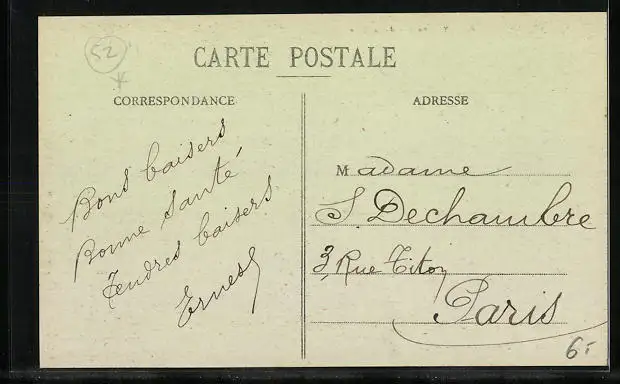 52
CARTE POSTALE
CORRESPONDANCE
ADRESSE
Bons baisers
Bonne Santé
Tendres baisers
Ernest
Madame
S. Dechambre
3, Rue Titon
Paris
6.-